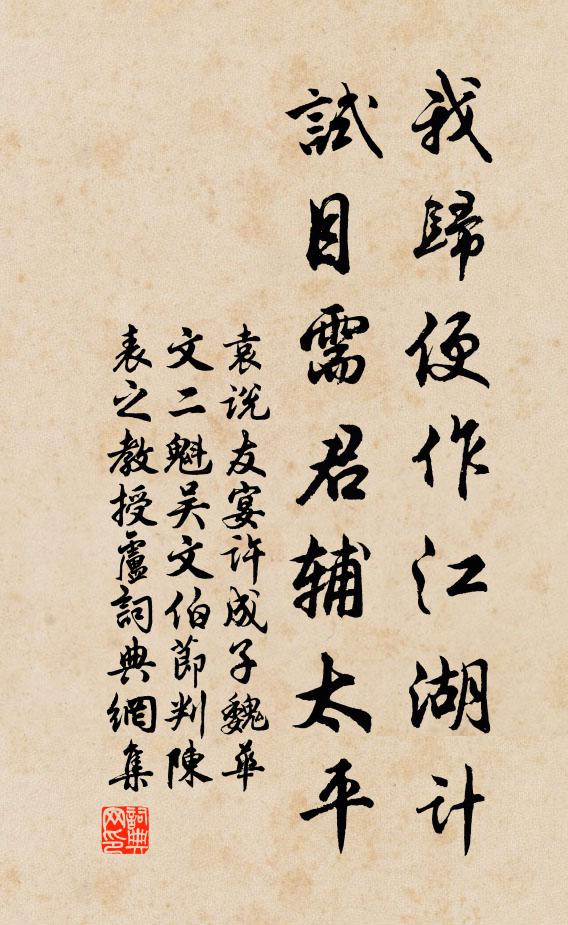 我歸便作江湖計
試目需君輔太平
袁说友宴许成子魏華
文二魁吴文伯節判陳
表之教授盧詞典網集
詞典网印